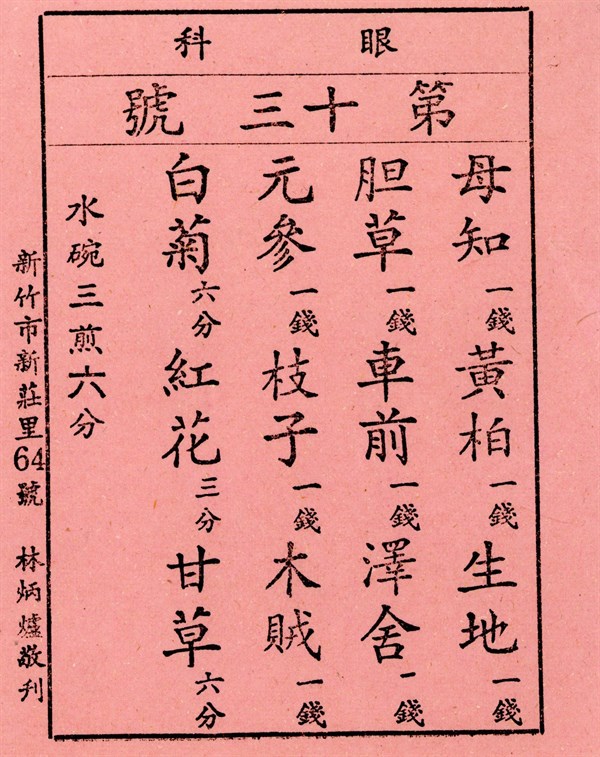 眼科
第十三號
母知一錢 黃柏一錢 生地一錢
胆草一錢 車前一錢 澤舍一錢
元參一錢 枝子一錢 木賊一錢
白菊六分 紅花三分 甘草六分
水碗三煎六分
新竹市新莊里64號 林炳爐敬刊